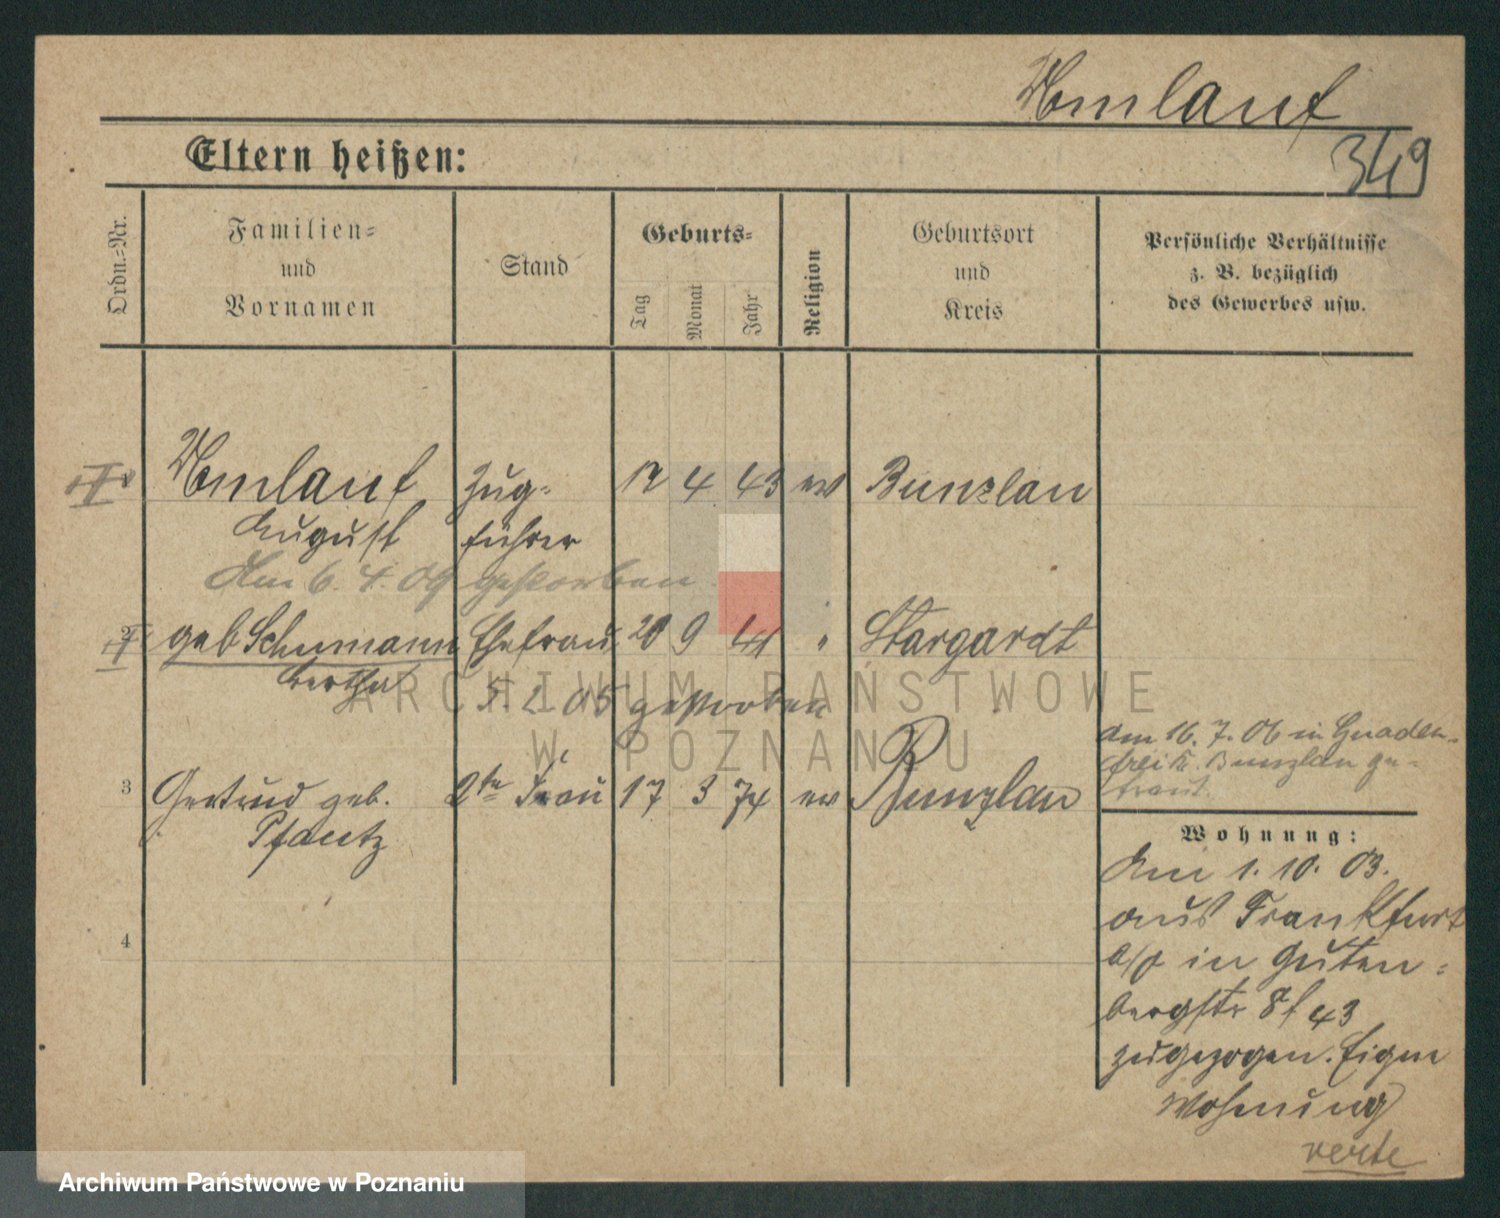 Umlauf
349
Eltern heißen:
Ordn.=Nr.
Familien=
und
Vornamen
Stand
Geburts=
Tag
Monat
Jahr
Religion
Geburtsort
und
Kreis
Persönliche Verhältnisse
z. B. bezüglich
des Gewerbes usw.
Umlauf Zug= 12 4 43 ev Bunzlau
August führer
Am 6. 4. 09 gestorben
2 geb Schumann Ehefrau 20 9 41 " Stargardt
Bertha
5. 2. 05 gestorben
am 16. 7. 06 in Gnaden=
frei K. Bunzlau ge=
traut.
3 Gertrud geb. 2te Frau 17 3 74 ev Bunzlau
Pfautz
4
Wohnung:
Am 1. 10. 03.
aus Frankfurt
a/o in Guten=
bergstr 8 43
zugezogen. Eigene
Wohnung
verte
ARCHIWUM PAŃSTWOWE
W POZNANIU
Archiwum Państwowe w Poznaniu